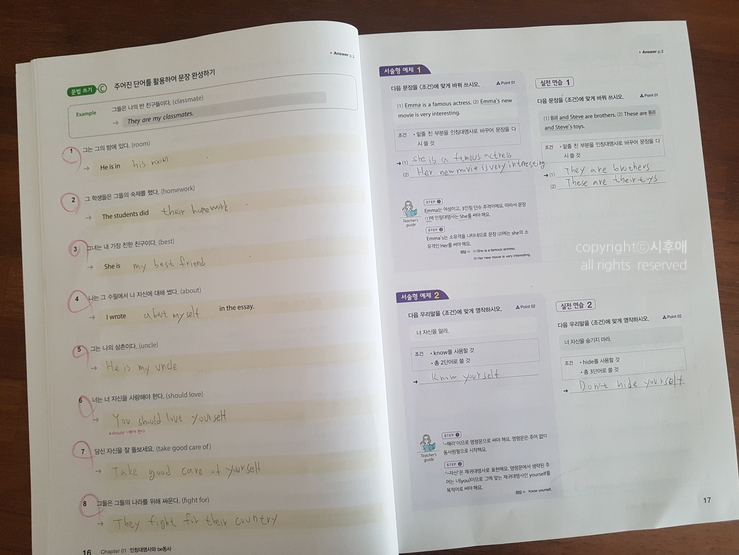 • Answer p.3
문법 쓰기 C 주어진 단어를 활용하여 문장 완성하기
Example 그들은 나의 반 친구들이다. (classmate)
→ They are my classmates.
1 그는 그의 방에 있다. (room)
→ He is in his room
2 그 학생들은 그들의 숙제를 했다. (homework)
→ The students did their homework
3 그녀는 내 가장 친한 친구이다. (best)
→ She is my best friend
4 나는 그 수필에서 나 자신에 대해 썼다. (about)
→ I wrote about myself in the essay.
5 그는 나의 삼촌이다. (uncle)
→ He is my uncle
6 너는 너 자신을 사랑해야 한다. (should love)
→ You should love yourself
7 당신 자신을 잘 돌보세요. (take good care of)
→ Take good care of yourself
8 그들은 그들의 나라를 위해 싸운다. (fight for)
→ They fight for their country
16 Chapter 01 인칭대명사와 be동사
• Answer p.3
서술형 예제 1
다음 문장을 〈조건〉에 맞게 바꿔 쓰시오. Point 01
(1) Emma is a famous actress. (2) Emma's new
movie is very interesting.
조건 • 밑줄 친 부분을 인칭대명사로 바꾸어 문장을 다
시 쓸 것
→ (1) She is a famous actress
(2) Her new movie is very interesting
STEP 1
Emma는 여성이고, 3인칭 단수 주격이에요. 따라서 문장
(1)에 인칭대명사는 She를 써야 해요.
Teacher's
guide
STEP 2
Emma's는 소유격을 나타내므로 문장 (2)에는 she의 소
유격인 Her를 써야 해요.
정답 → (1) She is a famous actress.
(2) Her new movie is very interesting.
실전 연습 1
다음 문장을 〈조건〉에 맞게 바꿔 쓰시오.
Point 01
(1) Bill and Steve are brothers. (2) These are Bill
and Steve's toys.
조건 • 밑줄 친 부분을 인칭대명사로 바꾸어 문장을 다
시 쓸 것
→ (1) They are brothers
(2) These are their tys
copyrightⓒ시후애
all rights reserved
서술형 예제 2
다음 우리말을 〈조건〉에 맞게 영작하시오. Point 02
너 자신을 알라.
조건 • know를 사용할 것
• 총 2단어로 쓸 것
→ Know yourself
STEP 1
'~해라'이므로 명령문으로 써야 해요. 명령문은 주어 없이
동사원형으로 시작해요.
Teacher's
guide
STEP 2
'~자신'은 재귀대명사로 표현해요. 명령문에서 생략된 주
어는 너(you)이므로 그에 맞는 재귀대명사인 yourself를
목적어로 써야 해요.
정답 → Know yourself.
실전 연습 2
다음 우리말을 〈조건〉에 맞게 영작하시오.
Point 02
너 자신을 숨기지 마라.
조건 • hide를 사용할 것
• 총 3단어로 쓸 것
→ Don't hide yourself
17